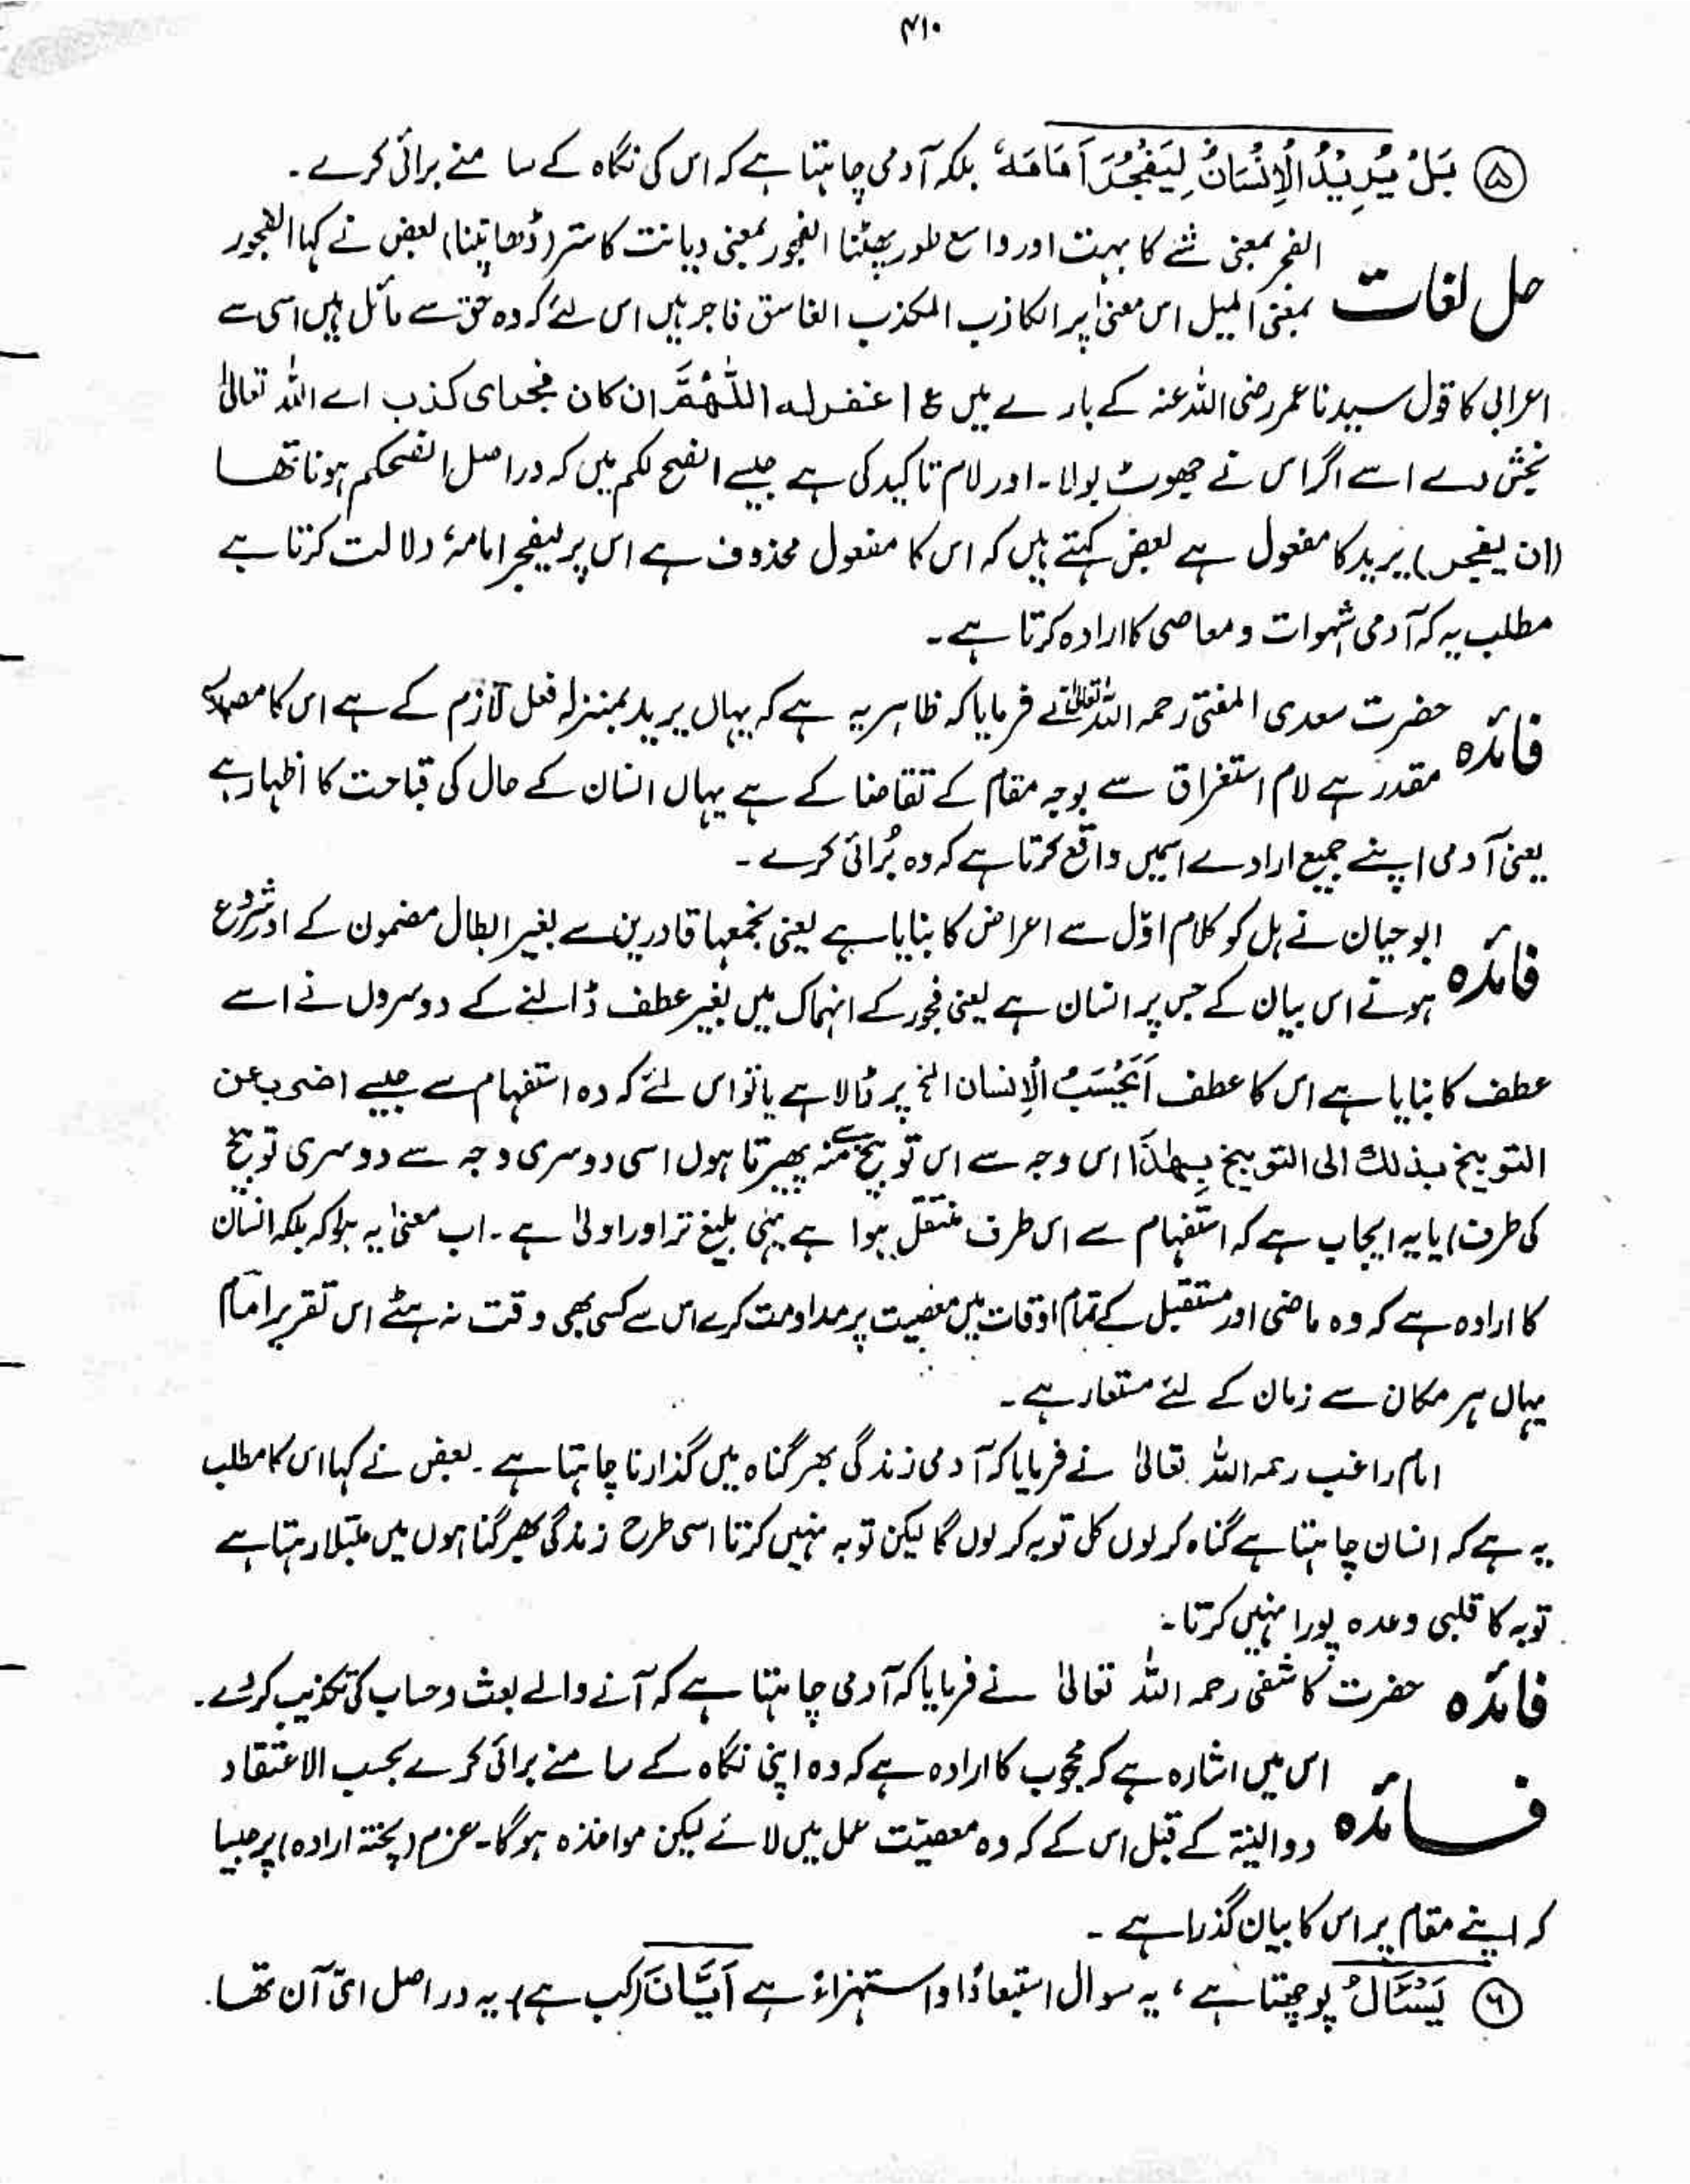 ۴۱۰
⑤ بَلْ يُرِيْدُ الْاِنْسَانُ لِيَفْجُرَ اَمَامَهٗ بلکہ آدمی چاہتا ہے کہ اس کی نگاہ کے سامنے برائی کرے۔
حل لغات الفجر بمعنی شئے کا بہت اور واسع طور پھٹنا الفجور بمعنی دیانت کا ستر (ڈھانپنا) بعض نے کہا الفجور
بمعنی المیل اس معنیٰ پر الکاذب المکذب الفاسق فاجر ہیں اس لئے کہ وہ حق سے مائل ہیں اسی سے
اعرابی کا قول سیدنا عمر رضی اللہ عنہ کے بارے میں ع اغفر له اللّٰهُمَّ ان كان فجر ای کذب اے اللہ تعالیٰ
بخش دے اسے اگر اس نے جھوٹ بولا۔ اور لام تاکید کی ہے جیسے انصح لکم میں کہ دراصل انصحکم ہونا تھا
(ان یفجر) یرید کا مفعول ہے بعض کہتے ہیں کہ اس کا مفعول محذوف ہے اس پر لیفجر امامہٗ دلالت کرتا ہے
مطلب یہ کہ آدمی شہوات و معاصی کا ارادہ کرتا ہے۔
فائدہ حضرت سعدی المفتی رحمہ اللہ تعالیٰ نے فرمایا کہ ظاہر یہ ہے کہ یہاں یرید بمنزلہ فعل لازم کے ہے اس کا مصدر
مقدر ہے لام استغراق سے بوجہ مقام کے تقاضا کے ہے یہاں انسان کے حال کی قباحت کا اظہار ہے
یعنی آدمی اپنے جمیع ارادے اسمیں واقع کرتا ہے کہ وہ بُرائی کرے۔
فائدہ ابوحیان نے بل کو کلام اوّل سے اعراض کا بنایا ہے یعنی نجمعہا قادرین سے بغیر ابطال مضمون کے اور شروع
ہوتے اس بیان کے جس پر انسان ہے یعنی فجور کے انہماک میں بغیر عطف ڈالنے کے دوسروں نے اسے
عطف کا بنایا ہے اس کا عطف اَیَحْسَبُ الْاِنسان الخ پر ڈالا ہے یا تو اس لئے کہ وہ استفہام سے جیسے اضرب عن
التوبیخ بذلك الی التوبیخ بِهٰذَا اس وجہ سے اس توبیخ سے منہ پھیرتا ہوں اسی دوسری وجہ سے دوسری توبیخ
کی طرف) یا یہ ایجاب ہے کہ استفہام سے اس طرف منتقل ہوا ہے یہی بلیغ تر اور اولیٰ ہے۔ اب معنیٰ یہ ہوا کہ بلکہ انسان
کا ارادہ ہے کہ وہ ماضی اور مستقبل کے تمام اوقات میں معصیت پر مداومت کرے اس سے کسی بھی وقت نہ ہٹے اس تقریر امام
یہاں ہر مکان سے زمان کے لئے مستعار ہے۔
امام راغب رحمہ اللہ تعالیٰ نے فرمایا کہ آدمی زندگی بھر گناہ میں گذارنا چاہتا ہے۔ بعض نے کہا اس کا مطلب
یہ ہے کہ انسان چاہتا ہے گناہ کر لوں کل توبہ کر لوں گا لیکن توبہ نہیں کرتا اسی طرح زندگی بھر گناہوں میں مبتلا رہتا ہے
توبہ کا قلبی وعدہ پورا نہیں کرتا۔
فائدہ حضرت کاشفی رحمہ اللہ تعالیٰ نے فرمایا کہ آدمی چاہتا ہے کہ آنے والے بعث و حساب کی تکذیب کر دے۔
فائدہ اس میں اشارہ ہے کہ محجوب کا ارادہ ہے کہ وہ اپنی نگاہ کے سامنے برائی کرے بحسب الاعتقاد
دوالنیۃ کے قبل اس کے کہ وہ معصیت عمل میں لائے لیکن مواخذہ ہوگا۔ عزم (پختہ ارادہ) پر جیسا
کہ اپنے مقام پر اس کا بیان گذرا ہے۔
⑥ يَسْئَالُ پوچھتا ہے، یہ سوال استبعادًا و استہزاءً ہے اَيَّانَ (کب ہے) یہ دراصل ایّ آن تھا۔